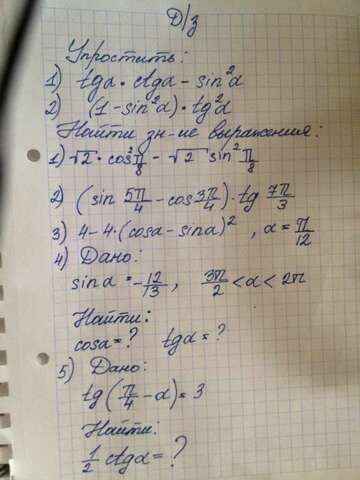 Д/з
Упростить:
1) tgα · ctgα - sin²α
2) (1 - sin²α) · tg²α
Найти зн-ие выражения:
1) √2 · cos²π/8 - √2 sin²π/8
2) (sin 5π/4 - cos 3π/4) · tg 7π/3
3) 4 - 4 · (cosα - sinα)², α = π/12
4) Дано:
sinα = -12/13, 3π/2 < α < 2π
Найти:
cosα = ? tgα = ?
5) Дано:
tg(π/4 - α) = 3
Найти:
1/2 ctgα = ?